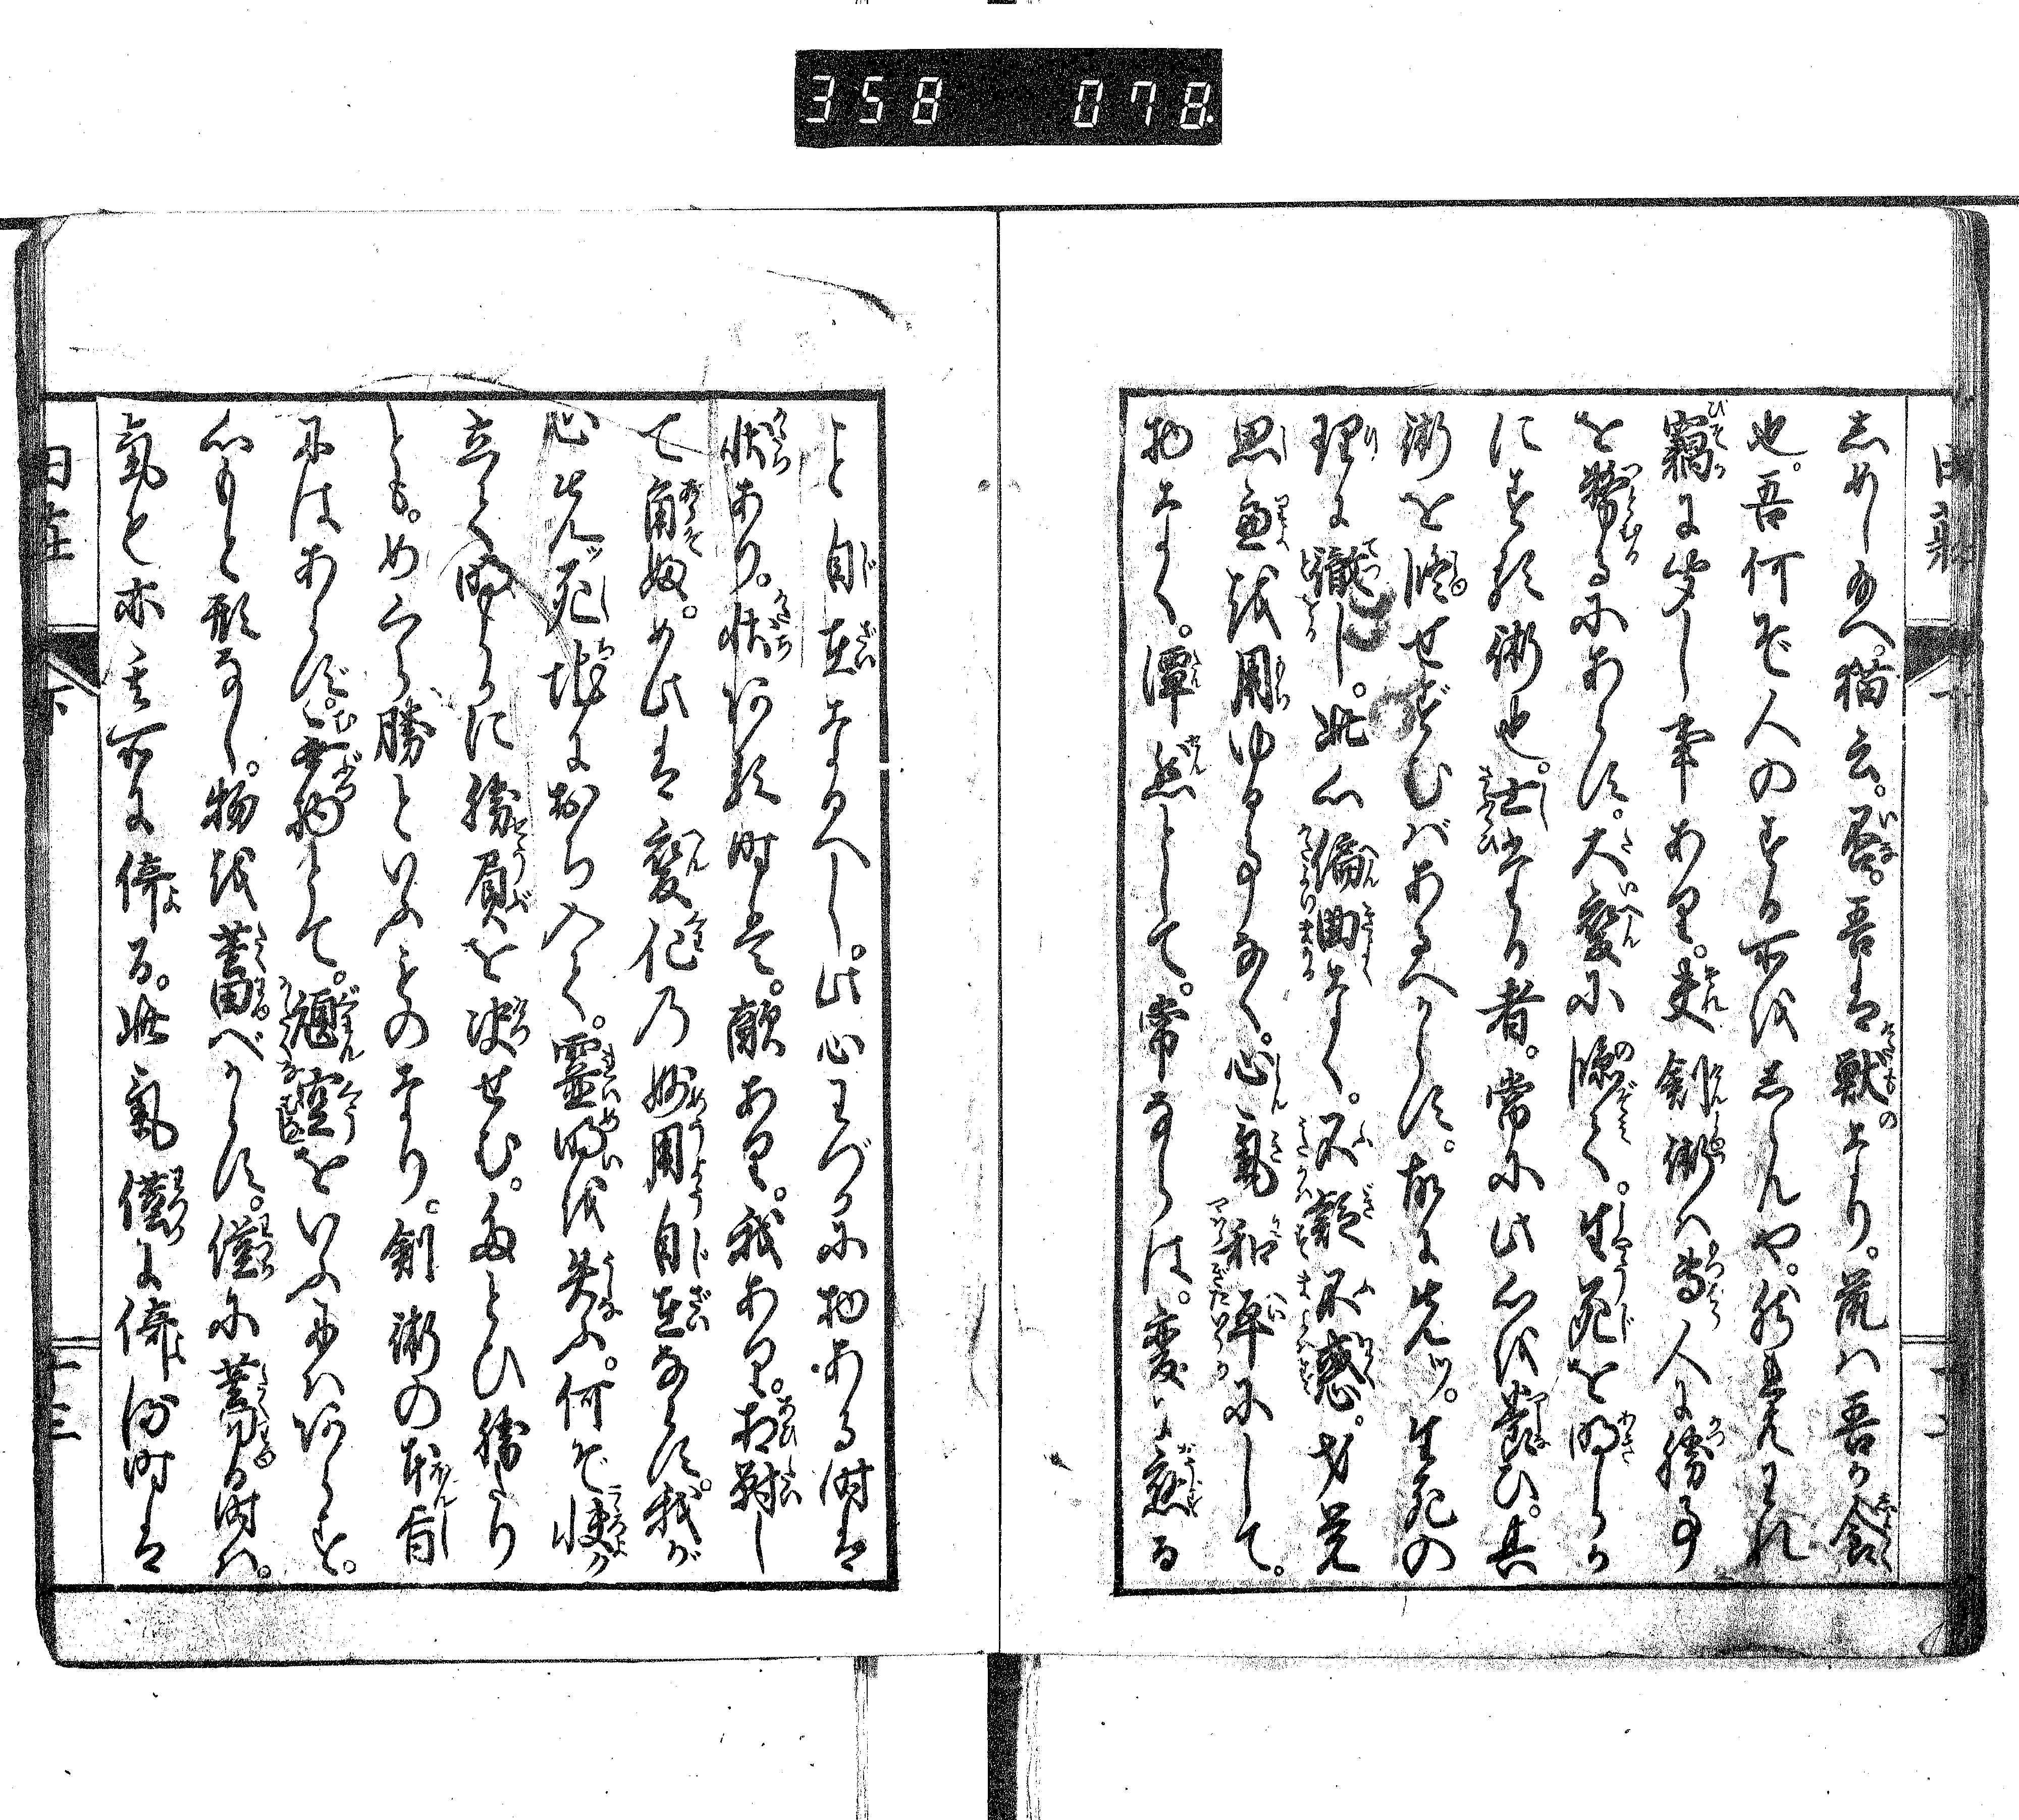 358 078
しめしたまへ。猫云。否。吾は獣なり。鼠ハ吾か食
也。吾何ぞ人のする所をしらんや。然共われ
竊に聞し事あり。夫剣術ハ専人に勝事
を務るにあらず。大変に臨て。生死を明らか
にする術也。士たる者。常に此心を養ひ。其
術を修せずむばあるべからず。故に先ヅ。生死の
理に徹し。此心偏曲なく。不疑不惑。才覚
思慮を用ゆる事なく。心気和平にして。
物なく。潭然として。常ならは。変に応る
こと自在なるべし。此心わづかに物ある時は
状あり。状ある時は。敵あり。我あり。相対し
て角ふ。如此は変化の妙用自在ならず。我が
心先死地におち入て。霊明を失ふ。何ぞ快ク
立て明らかに勝負を決せむ。たとひ勝たり
とも。めくら勝といふものなり。剣術の本旨
にはあらず。無物とて。頑空をいふにハあらず。
心もと形なし。物を蓄べからず。僅に蓄る時ハ。
気も亦其所に倚る。此気僅に倚ル時は
下
十三